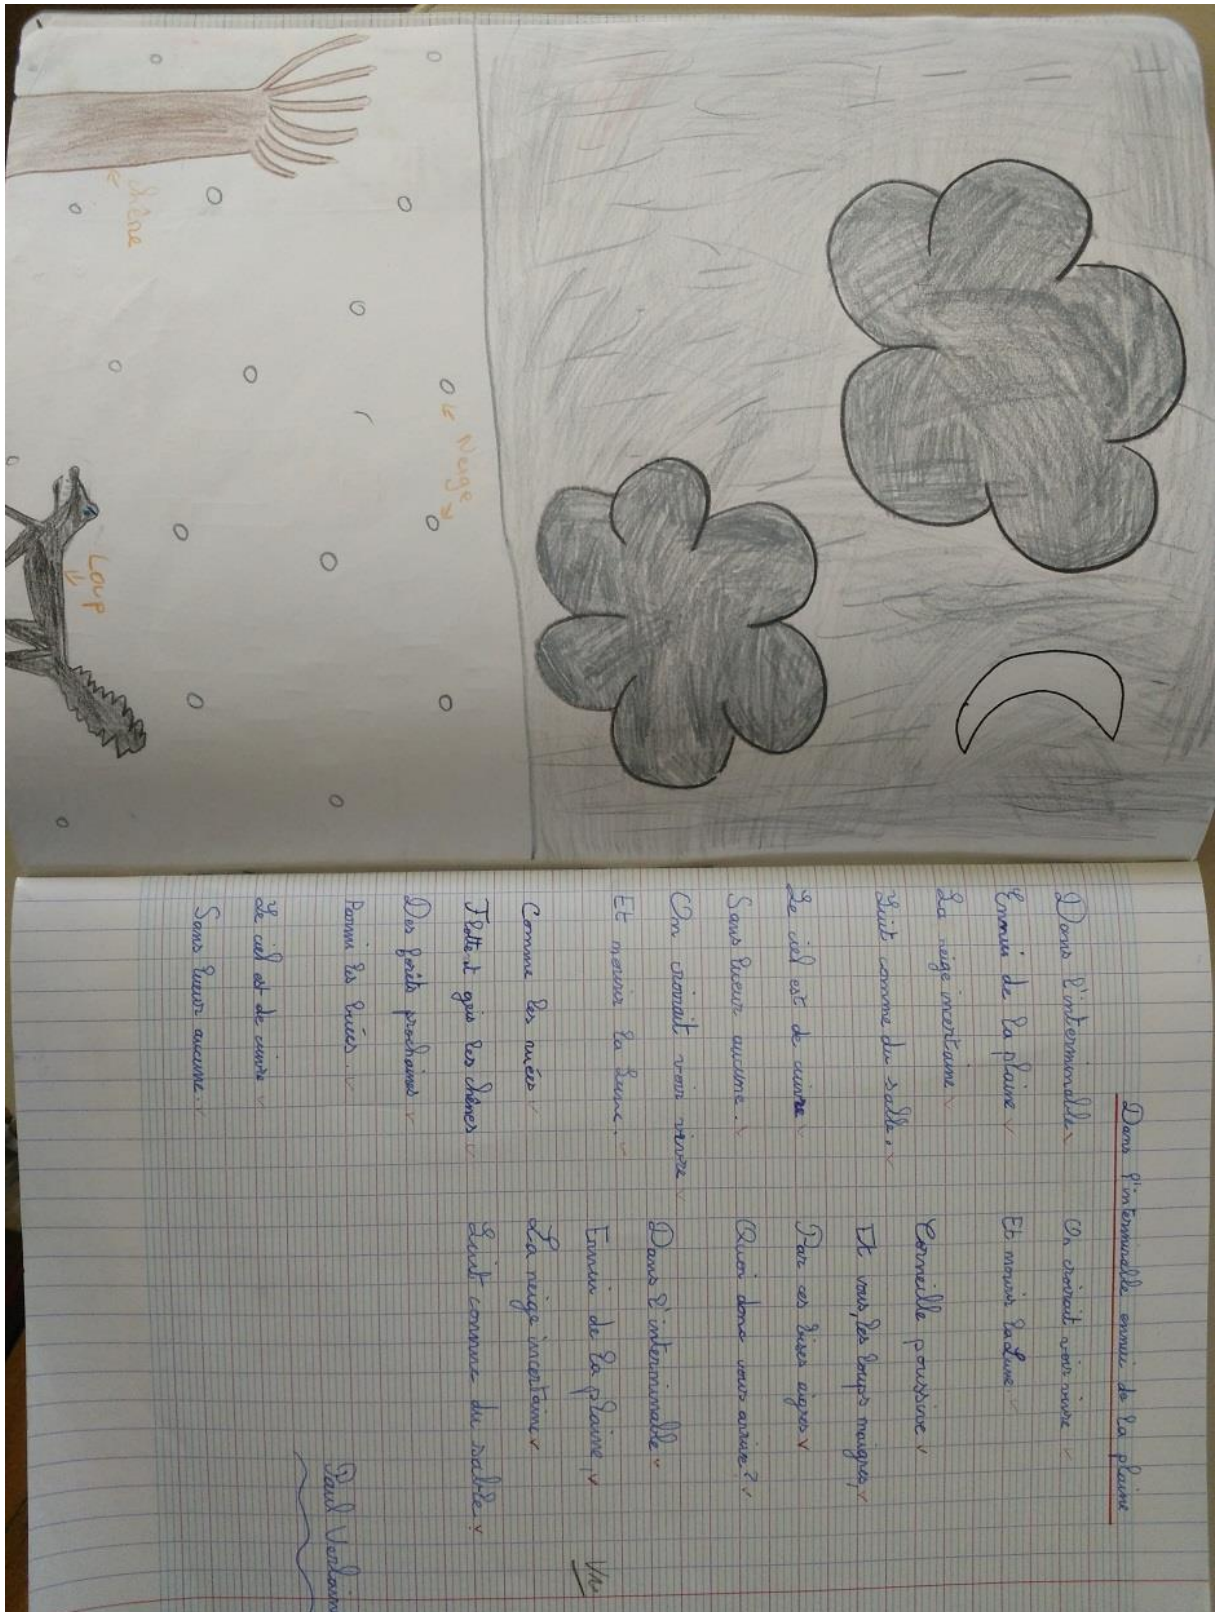 chêne
Neige
Loup
Dans l'interminable ennui de la plaine
Dans l'interminable
Ennui de la plaine
La neige incertaine
Luit comme du sable.
Le ciel est de cuivre
Sans lueur aucune.
On croirait voir vivre
Et mourir la Lune.
Comme les nuées
Flottent gris les chênes
Des forêts prochaines
Parmi les buées.
Le ciel est de cuivre
Sans lueur aucune.
On croirait voir vivre
Et mourir la Lune.
Corneille poussive
Et vous, les loups maigres,
Par ces bises aigres
Quoi donc vous arrive?
Dans l'interminable
Ennui de la plaine,
La neige incertaine
Luit comme du sable.
Paul Verlain
Vu